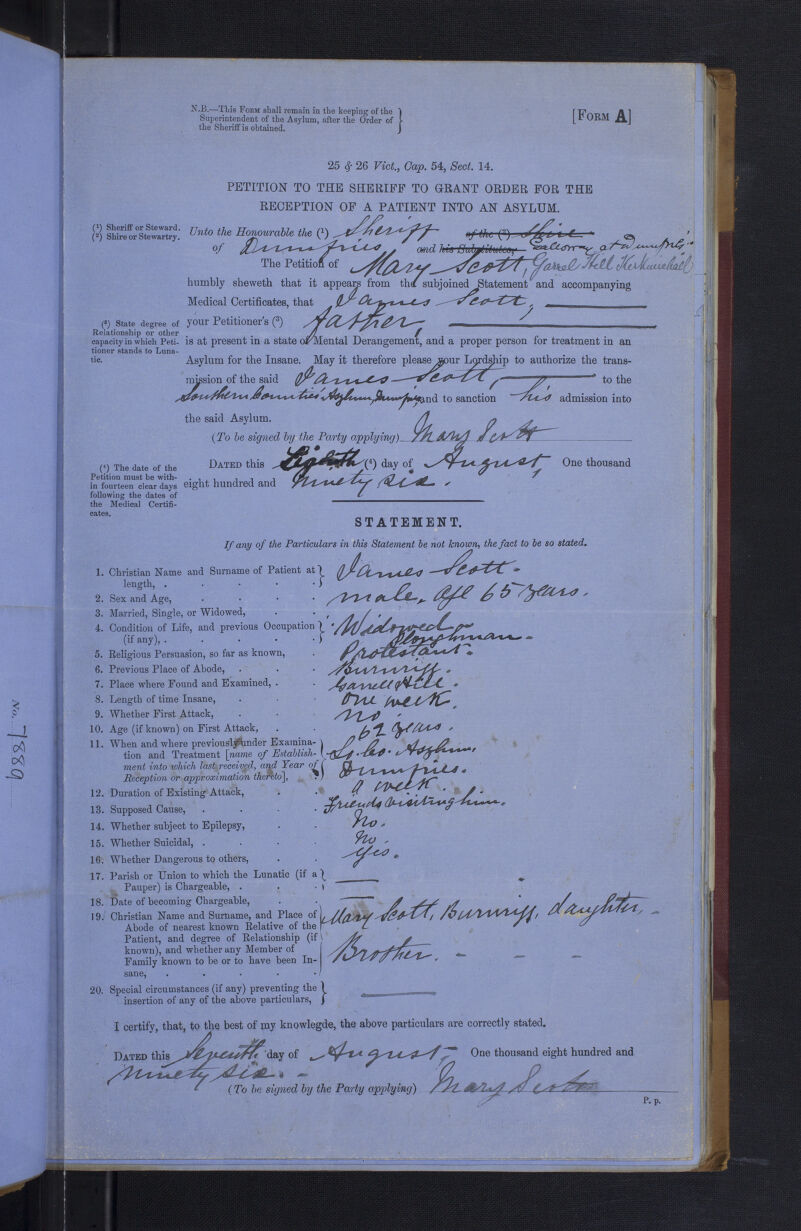 N.B.—This FORM shall remain in the keeping of the
Superintendent of the Asylum, after the Order of
the Sheriff is obtained.
[FORM A]
25 & 26 Vict., Cap. 54, Sect. 14.
PETITION TO THE SHERIFF TO GRANT ORDER FOR THE
RECEPTION OF A PATIENT INTO AN ASYLUM.
(¹) Sheriff or Steward.
(²) Shire or Stewartry.
Unto the Honourable the (¹) Sheriff of the (²) Shire
of Dumfries and his Substitutes Galloway at Dumfries
The Petition of Mary Scott, Garrel Hill Kirkmichael
humbly sheweth that it appears from the subjoined Statement and accompanying
Medical Certificates, that James Scott,
(³) State degree of
Relationship or other
capacity in which Peti-
tioner stands to Luna-
tic.
your Petitioner's (³) father,
is at present in a state of Mental Derangement, and a proper person for treatment in an
Asylum for the Insane. May it therefore please your Lordship to authorize the trans-
mission of the said James Scott, to the
Southern Counties Asylum, Dumfries and to sanction his admission into
the said Asylum.
(To be signed by the Party applying) Mary Scott
(⁴) The date of the
Petition must be with-
in fourteen clear days
following the dates of
the Medical Certifi-
cates.
DATED this Eighth (⁴) day of August, One thousand
eight hundred and ninety six.
STATEMENT.
If any of the Particulars in this Statement be not known, the fact to be so stated.
1. Christian Name and Surname of Patient at
length, . James Scott.
2. Sex and Age, male. age 65 years.
3. Married, Single, or Widowed, Widowed
4. Condition of Life, and previous Occupation
(if any), . Ploughman.
5. Religious Persuasion, so far as known, Protestant.
6. Previous Place of Abode, Burnrigg.
7. Place where Found and Examined, Garrell Hill.
8. Length of time Insane, One week.
9. Whether First Attack, no.
10. Age (if known) on First Attack, 62 years.
11. When and where previously under Examina-
tion and Treatment [name of Establish-
ment into which last received, and Year of
Reception or approximation thereto], So. Co. Asylum,
Dumfries.
12. Duration of Existing Attack, a week.
13. Supposed Cause, Friends visiting him.
14. Whether subject to Epilepsy, No.
15. Whether Suicidal, No.
16. Whether Dangerous to others, Yes.
17. Parish or Union to which the Lunatic (if a
Pauper) is Chargeable,
18. Date of becoming Chargeable,
19. Christian Name and Surname, and Place of
Abode of nearest known Relative of the
Patient, and degree of Relationship (if
known), and whether any Member of
Family known to be or to have been In-
sane, Mary Scott, Burnrigg, daughter,
Brother.
20. Special circumstances (if any) preventing the
insertion of any of the above particulars,
I certify, that, to the best of my knowlegde, the above particulars are correctly stated.
DATED this Seventh day of August One thousand eight hundred and
ninety six.
(To be signed by the Party applying) Mary Scott
P. p.
No. 7889